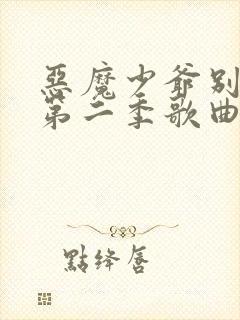 惡魔少爺別
第二季歌曲
點絳唇